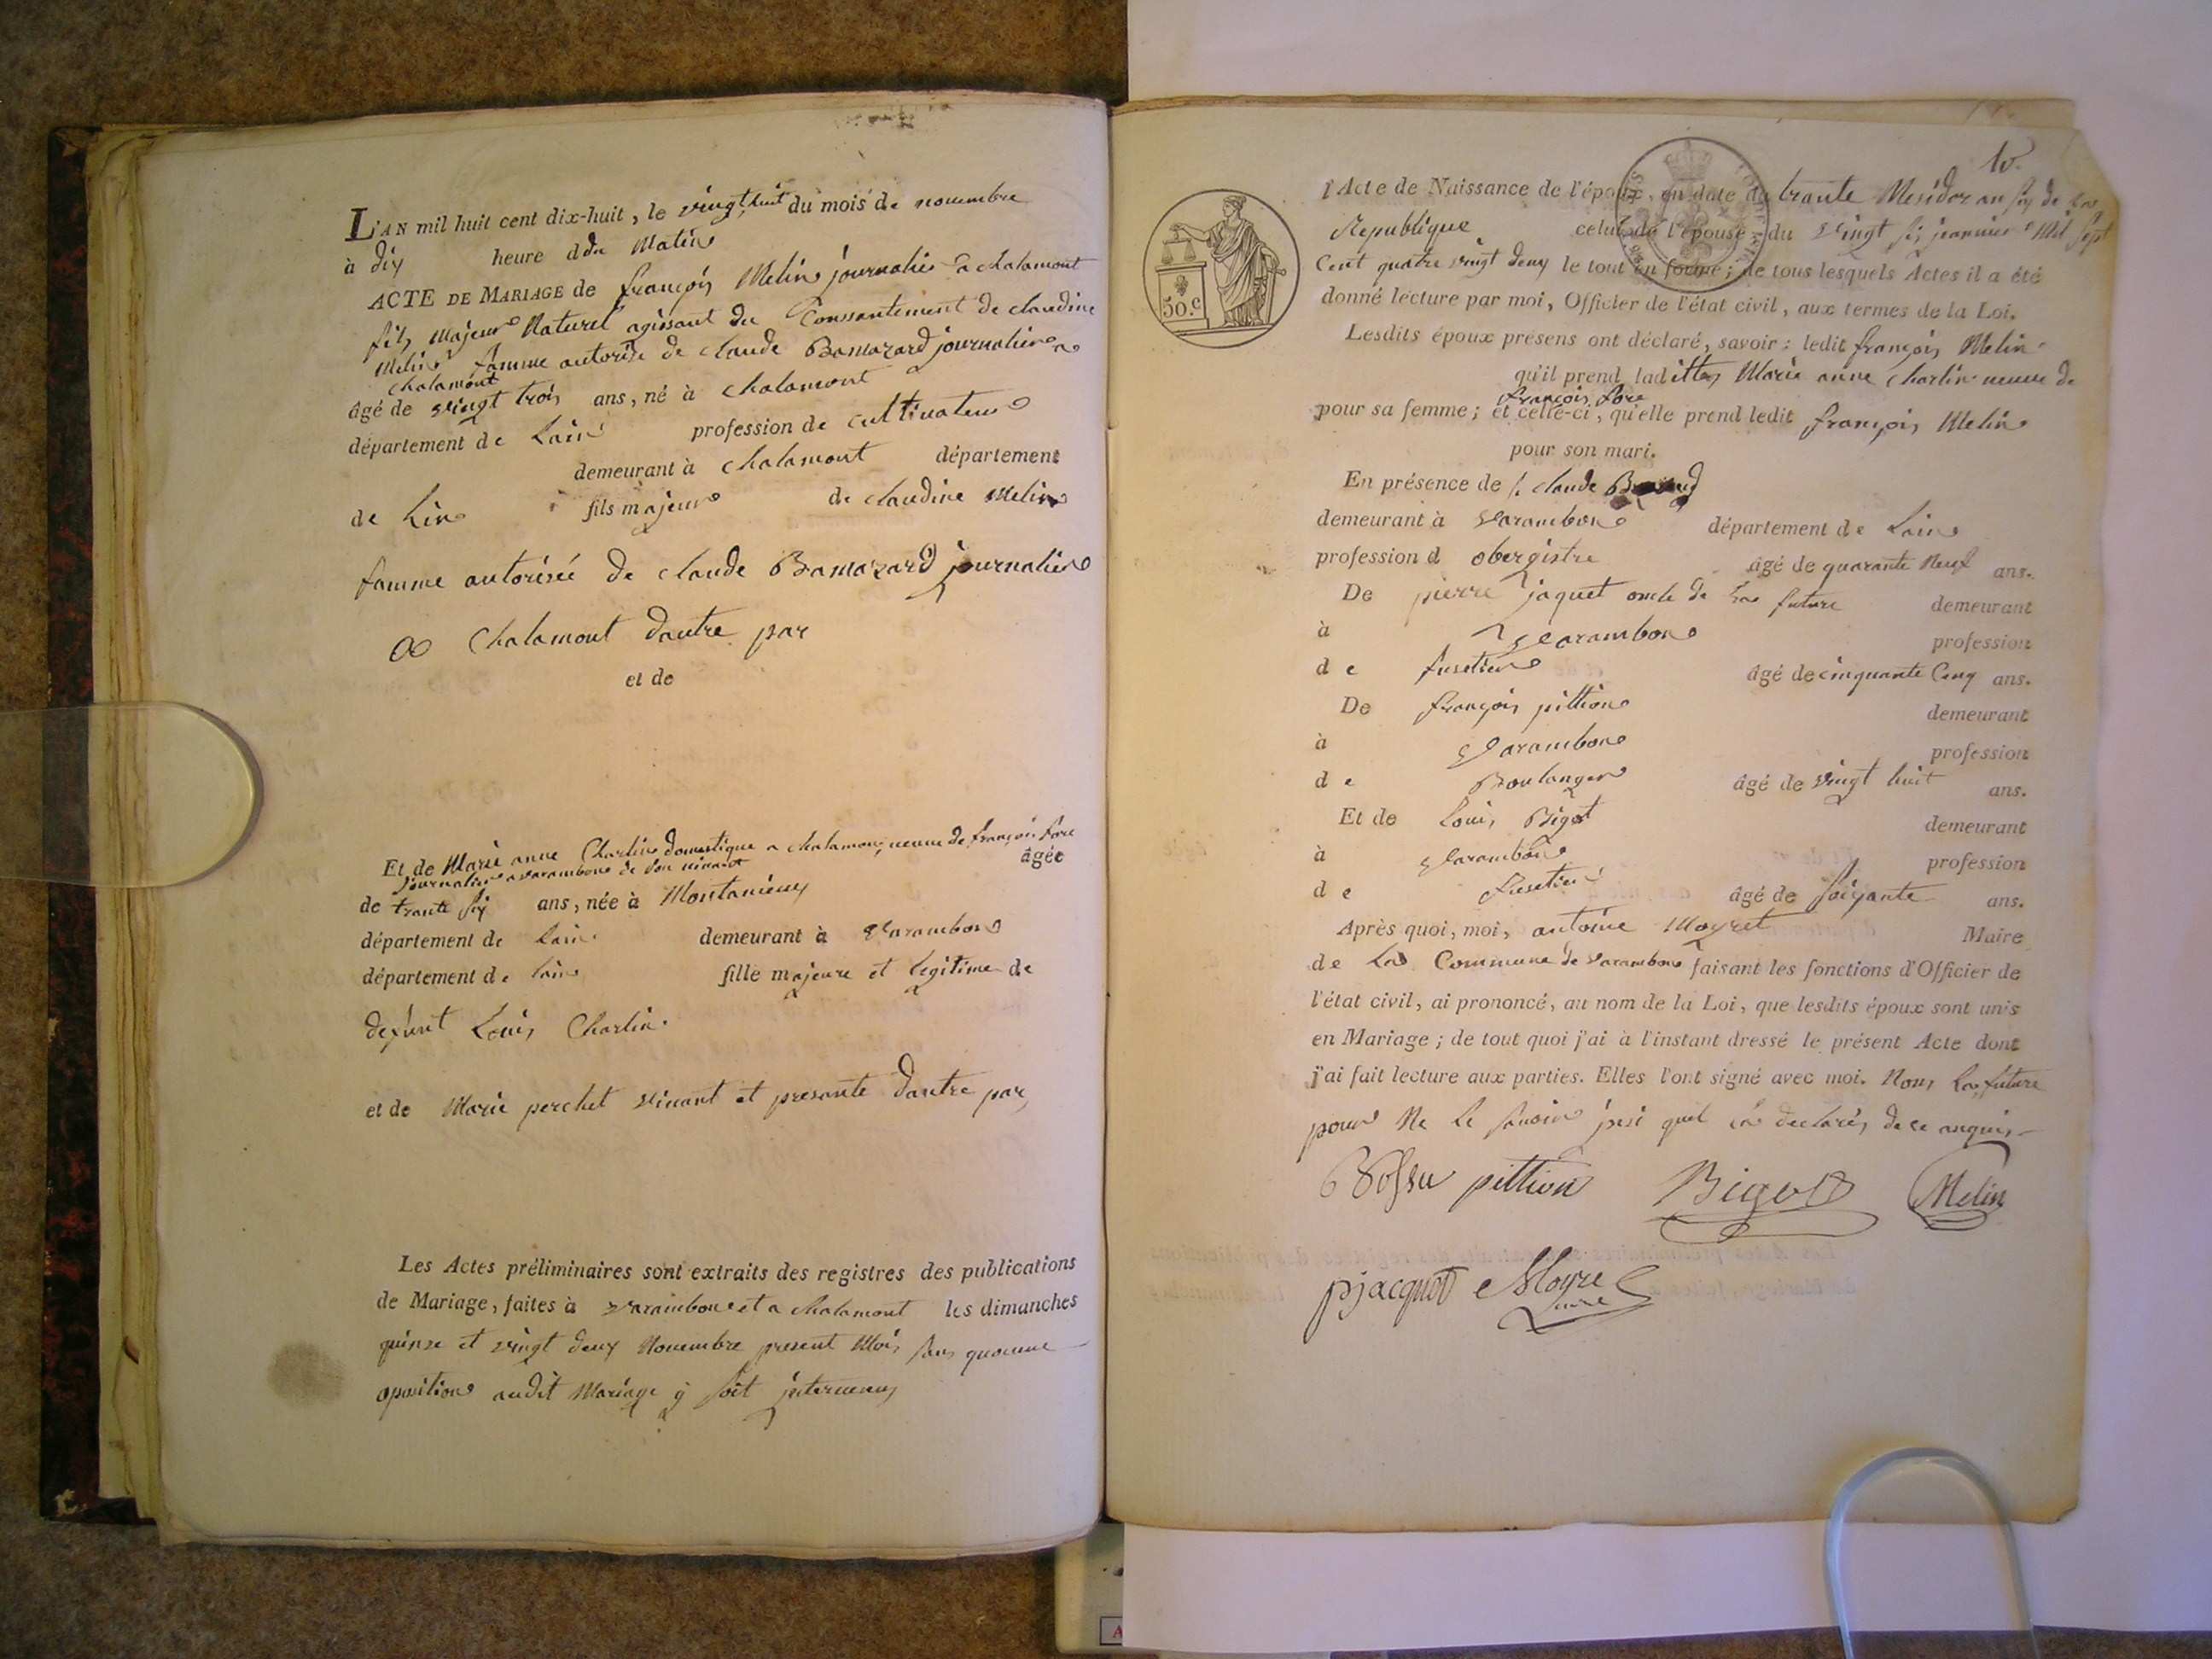 L'AN mil huit cent dix-huit, le vingt huit du mois de novembre
à dix heure d du Matin
ACTE DE MARIAGE de françois Melin journalier a chalamont
fils majeur Naturel agissant du Consantement de claudine
Melin famme autorisé de claude Bamazard journalier a
chalamont
âgé de vingt trois ans, né à chalamont
département de Lain profession de cultivateur
demeurant à chalamont département
de Lin fils majeur de claudine Melin
famme autorisée de claude Bamazard journalier
a Chalamont dautre par
et de
Et de Marie anne Charlin domestique a chalamon, veuve de françois fore
journalier a varambon de son vivant âgée
de trante six ans, née à Montanieux
département de Lain demeurant à Varambon
département de Lain fille majeure et legitime de
defunt Louis Charlin
et de Marie perchet vivant et presante dautre par,
Les Actes préliminaires sont extraits des registres des publications
de Mariage, faites à varambon et a chalamont les dimanches
quinze et vingt deux Novembre present Mois sans quocune
oposition audit Mariage y soit intervenus
10.
l'Acte de Naissance de l'époux, en date du trante Mesidor an six de La
Republique celui de l'épouse du vingt six janvier Mil sept
Cent quatre vingt deux le tout en forme; de tous lesquels Actes il a été
donné lecture par moi, Officier de l'état civil, aux termes de la Loi.
50.c
Lesdits époux présens ont déclaré, savoir: ledit françois Melin
qu'il prend laditte Marie anne Charlin veuve de
françois fore
pour sa femme; et celle-ci, qu'elle prend ledit françois Melin
pour son mari.
En présence de s. claude
demeurant à Varambon département de Lain
profession d obergistre âgé de quarante Neuf ans.
De pierre jaquet oncle de La future demeurant
à Varambon profession
de fusetier âgé de cinquante Cinq ans.
De françois pittion demeurant
à Varambon profession
de Boulanger âgé de vingt huit ans.
Et de Louis Bigot demeurant
à Varambon profession
de fusetier âgé de soixante ans.
Après quoi, moi, antoine Moyret Maire
de La Commune de varambon faisant les fonctions d'Officier de
l'état civil, ai prononcé, au nom de la Loi, que lesdits époux sont unis
en Mariage; de tout quoi j'ai à l'instant dressé le présent Acte dont
j'ai fait lecture aux parties. Elles l'ont signé avec moi. Nons La future
pour Ne Le savoir declarés de ce anquis
Bossu pittion Bigot Melin
pjacquet Moyret
maire